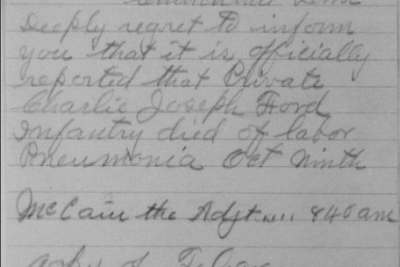 Deeply regret to inform
you that it is officially
reported that Private
Charlie Joseph Ford
Infantry died of labor
Pneumonia Oct Ninth
McCain the Adjt .... 840am